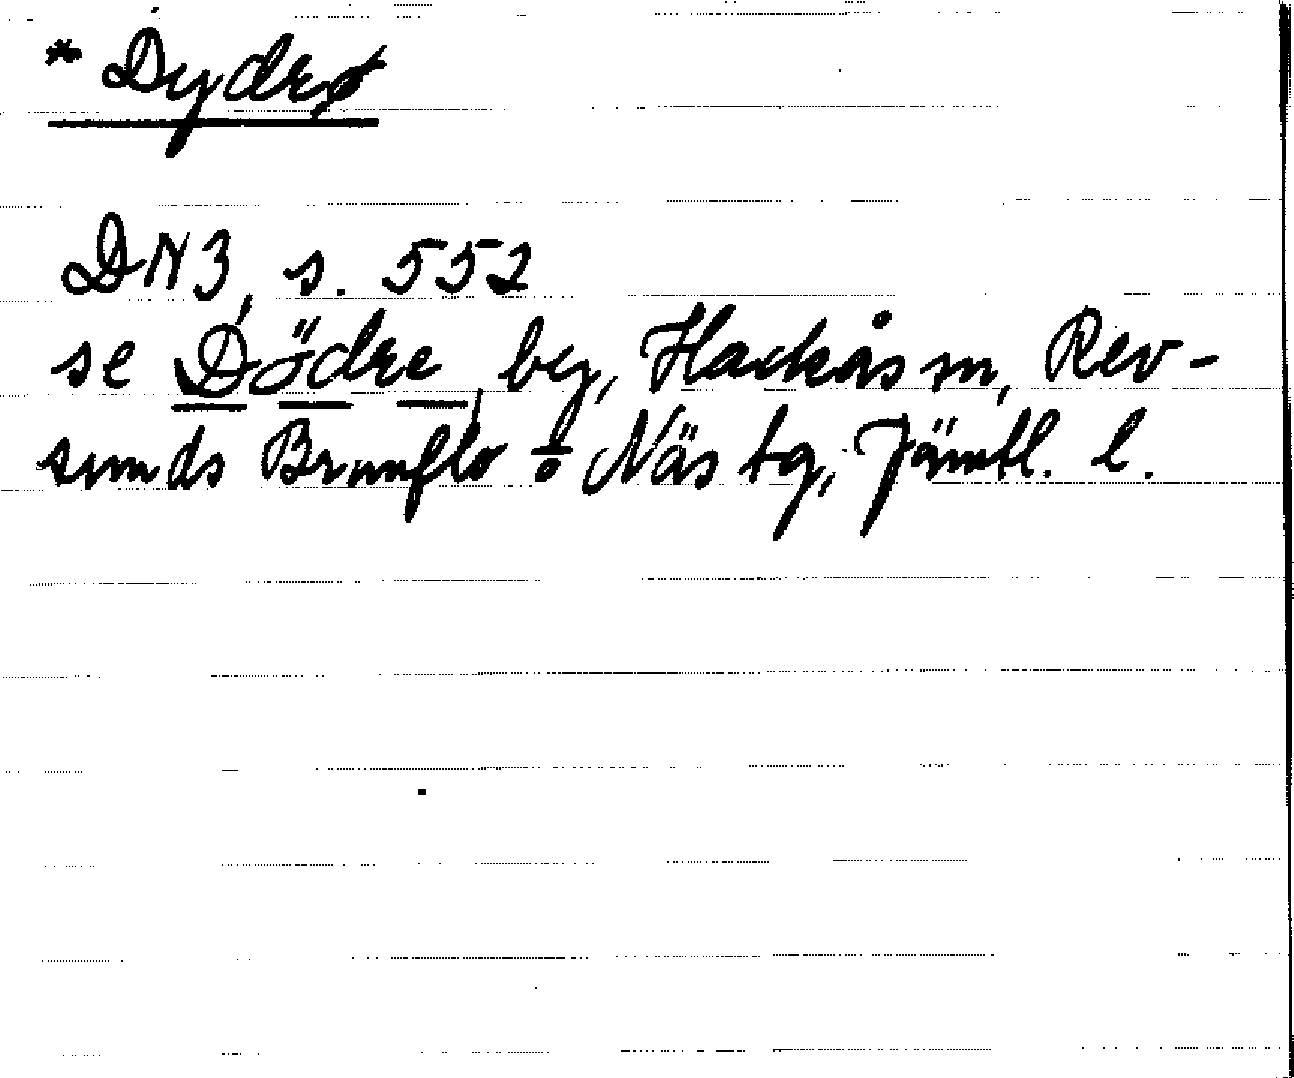 * Dydrø
DN 3, s. 552
se Dödre, by, Hackås sn, Rev-
sunds Brunflo o Näs tg, Jämtl. l.